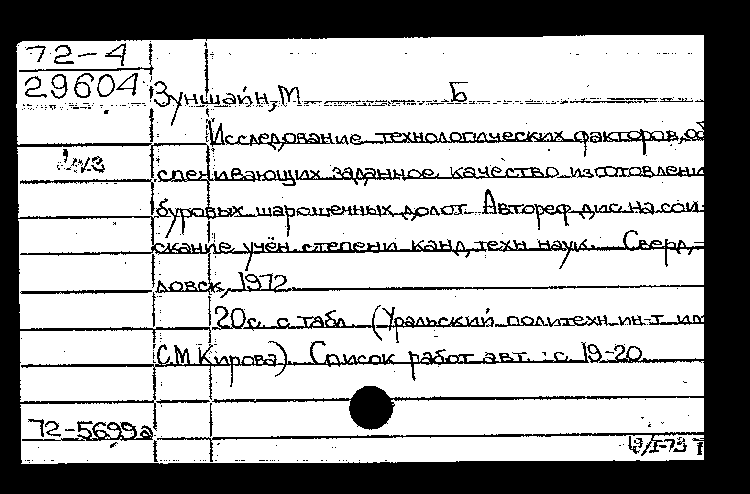 72-4
29604
Зуншайн, М Б
Исследование технологических факторов, об
2 экз
спечивающих заданное качество изготовлени
буровых шарошечных долот. Автореф дис. на сои-
скание учён. степени канд, техн наук. Сверд,-
ловск, 1972
20с. с табл. (Уральский политехн. ин-т им
С.М Кирова). Список работ авт. : с. 19-20.
72-5699а